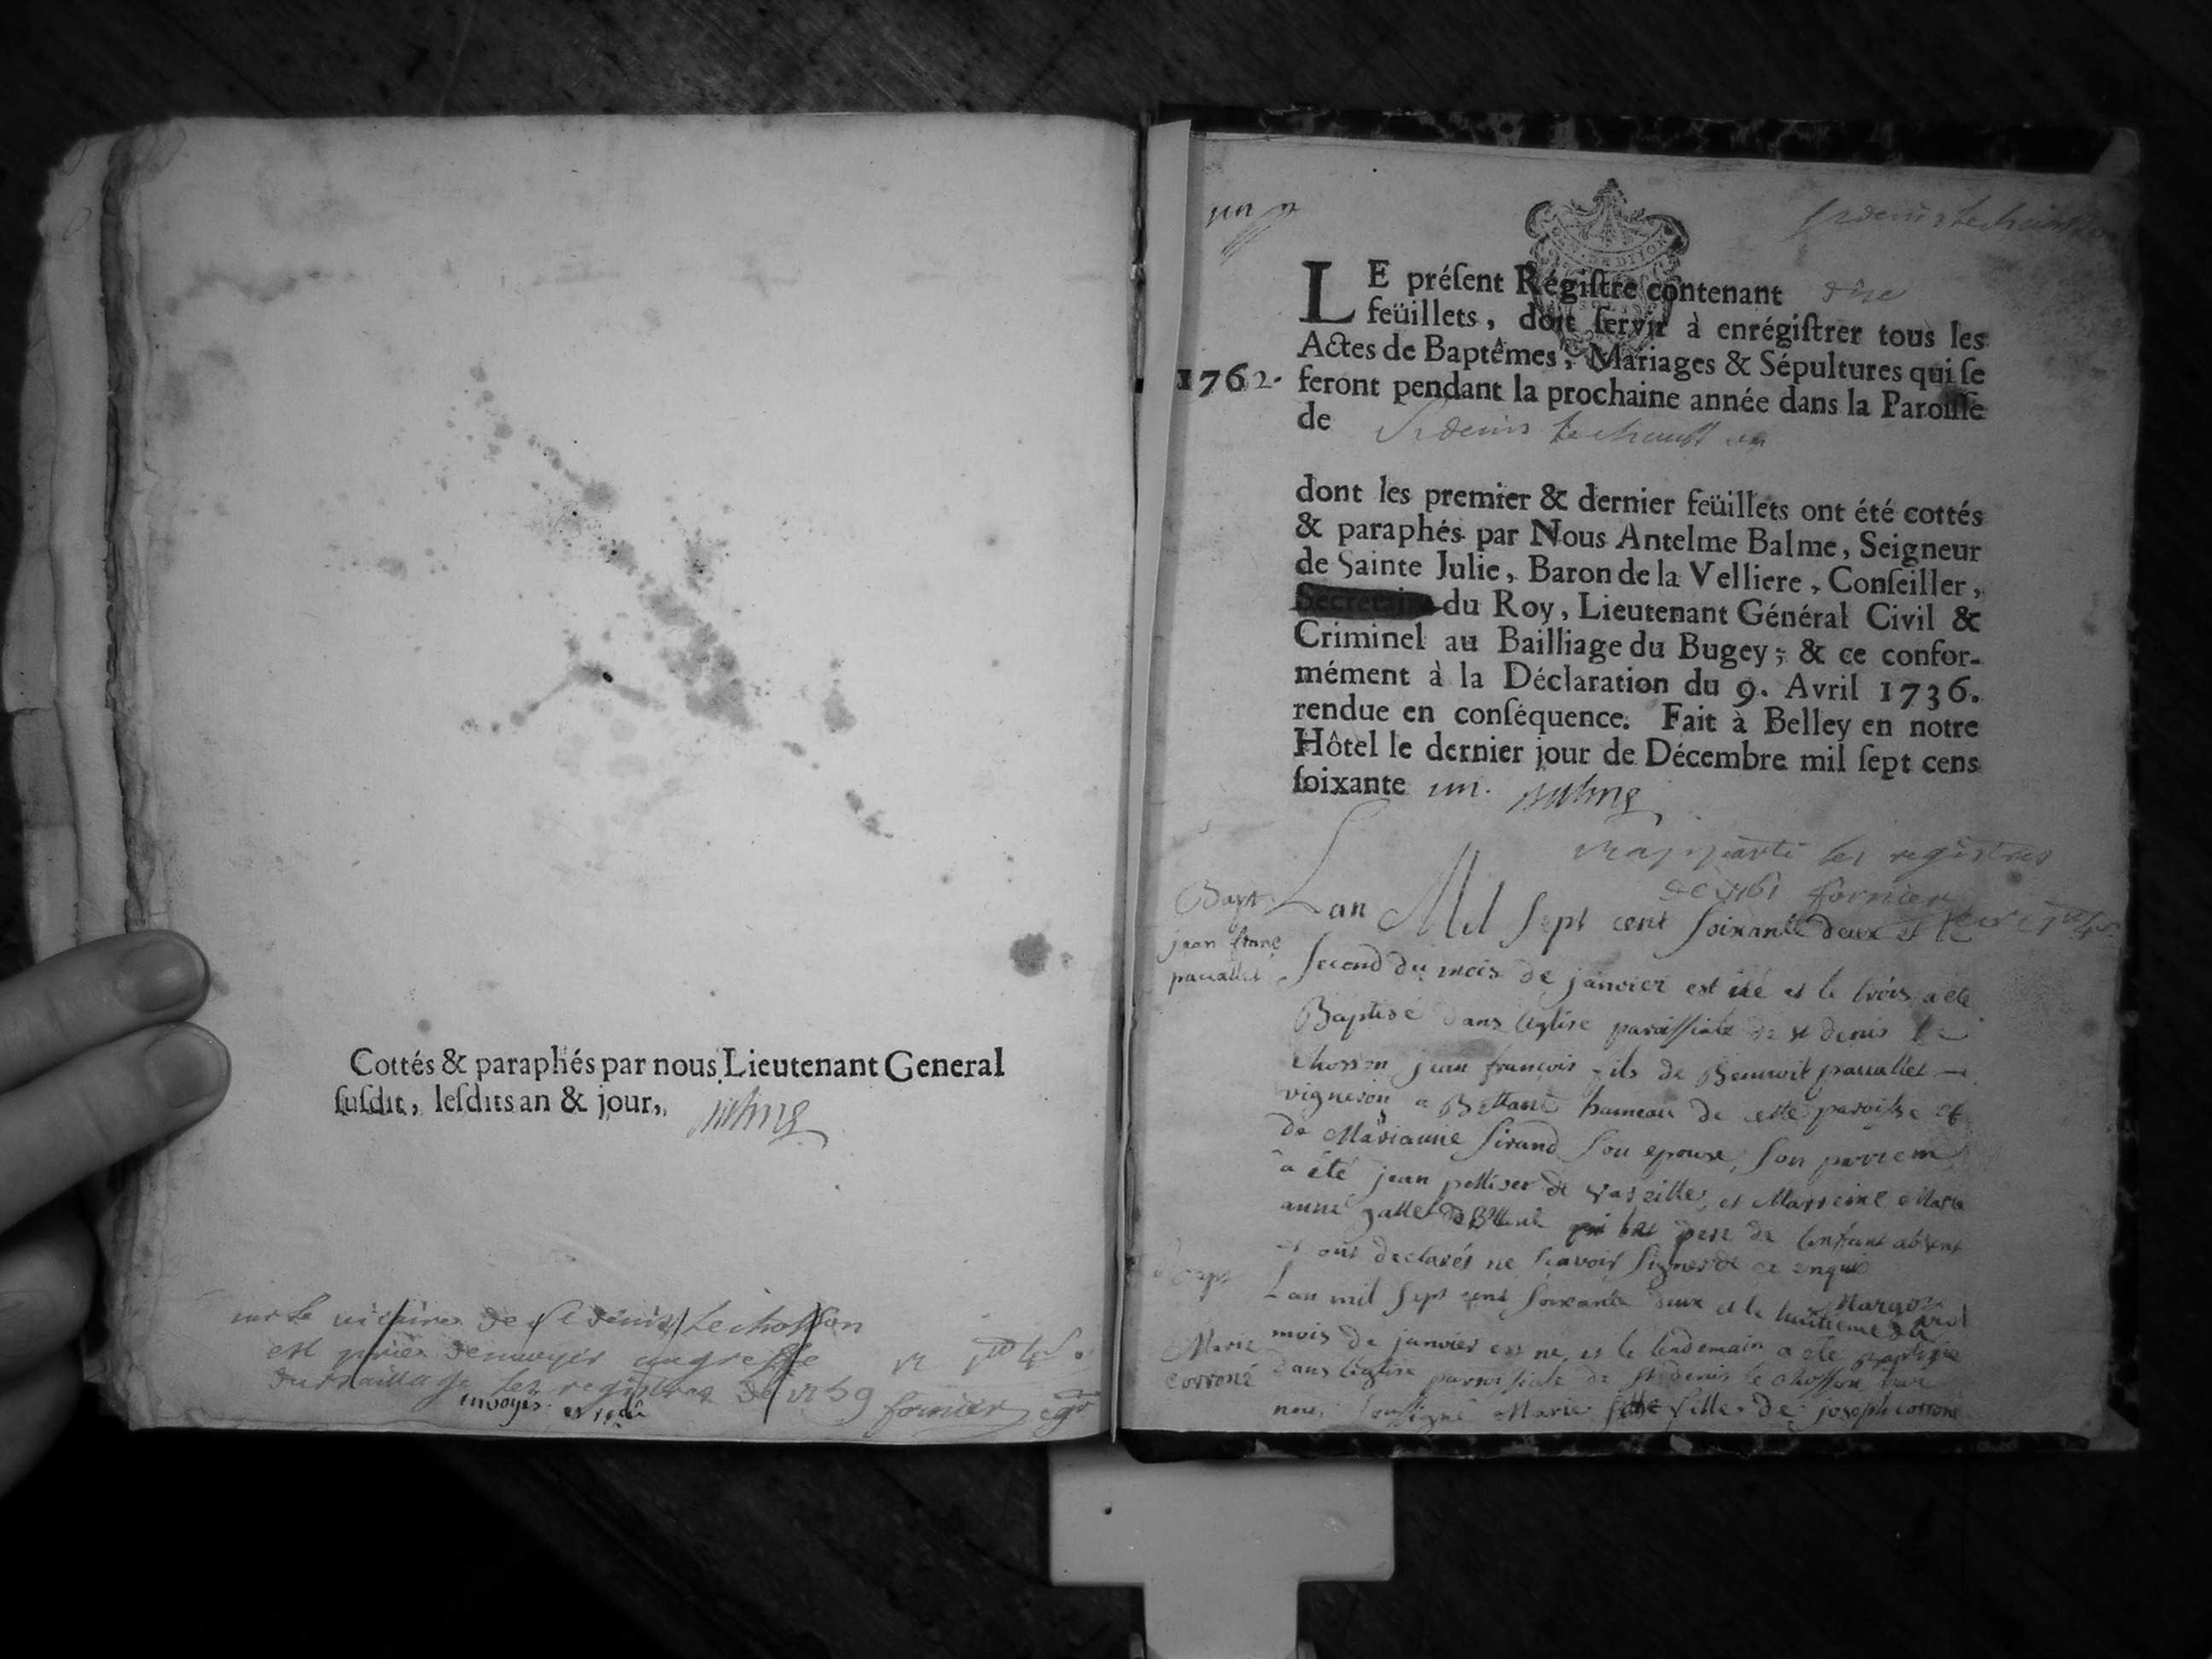 Cottés & paraphés par nous Lieutenant General
susdit, lesdits an & jour,
est priée denvoyer au greffe
du Bailliage les registres de 1759 fornier
envoyés et reçu
un
St denis le chausson
LE présent Régistre contenant dix
feüillets, doit servir à enrégistrer tous les
Actes de Baptêmes, Mariages & Sépultures qui se
1762. feront pendant la prochaine année dans la Paroisse
de St denis le chausson
dont les premier & dernier feüillets ont été cottés
& paraphés par Nous Antelme Balme, Seigneur
de Sainte Julie, Baron de la Velliere, Conseiller,
Secretaire du Roy, Lieutenant Général Civil &
Criminel au Bailliage du Bugey; & ce confor-
mément à la Déclaration du 9. Avril 1736.
rendue en conséquence. Fait à Belley en notre
Hôtel le dernier jour de Décembre mil sept cens
soixante un. Balme
rapporté les registres
de 1761 fornier
Bapt
jean franç
pauallet
Lan Mil sept cent soixante deux et le
second du mois de janvier est né et le trois a ete
Baptisé dans leglise paroissiale de st denis le
chosson jean françois fils de Bennoit pauallet
vigneron a Bettant hameau de cette paroisse et
de Marianne sirand son epouse, son parrein
a été jean pellisser de vareille, et Marreine Marie
anne gallet de le pere de lenfant absent
et ont declarés ne sçavoir signer de ce enquis
Margot
Bapt
Marie
corroné
Lan mil sept cent soixante deux et le huitieme du
mois de janvier est ne et le lendemain a ete Baptisée
dans leglise paroissiale de st denis le chosson par
nous soussigné Marie fille de joseph corroné